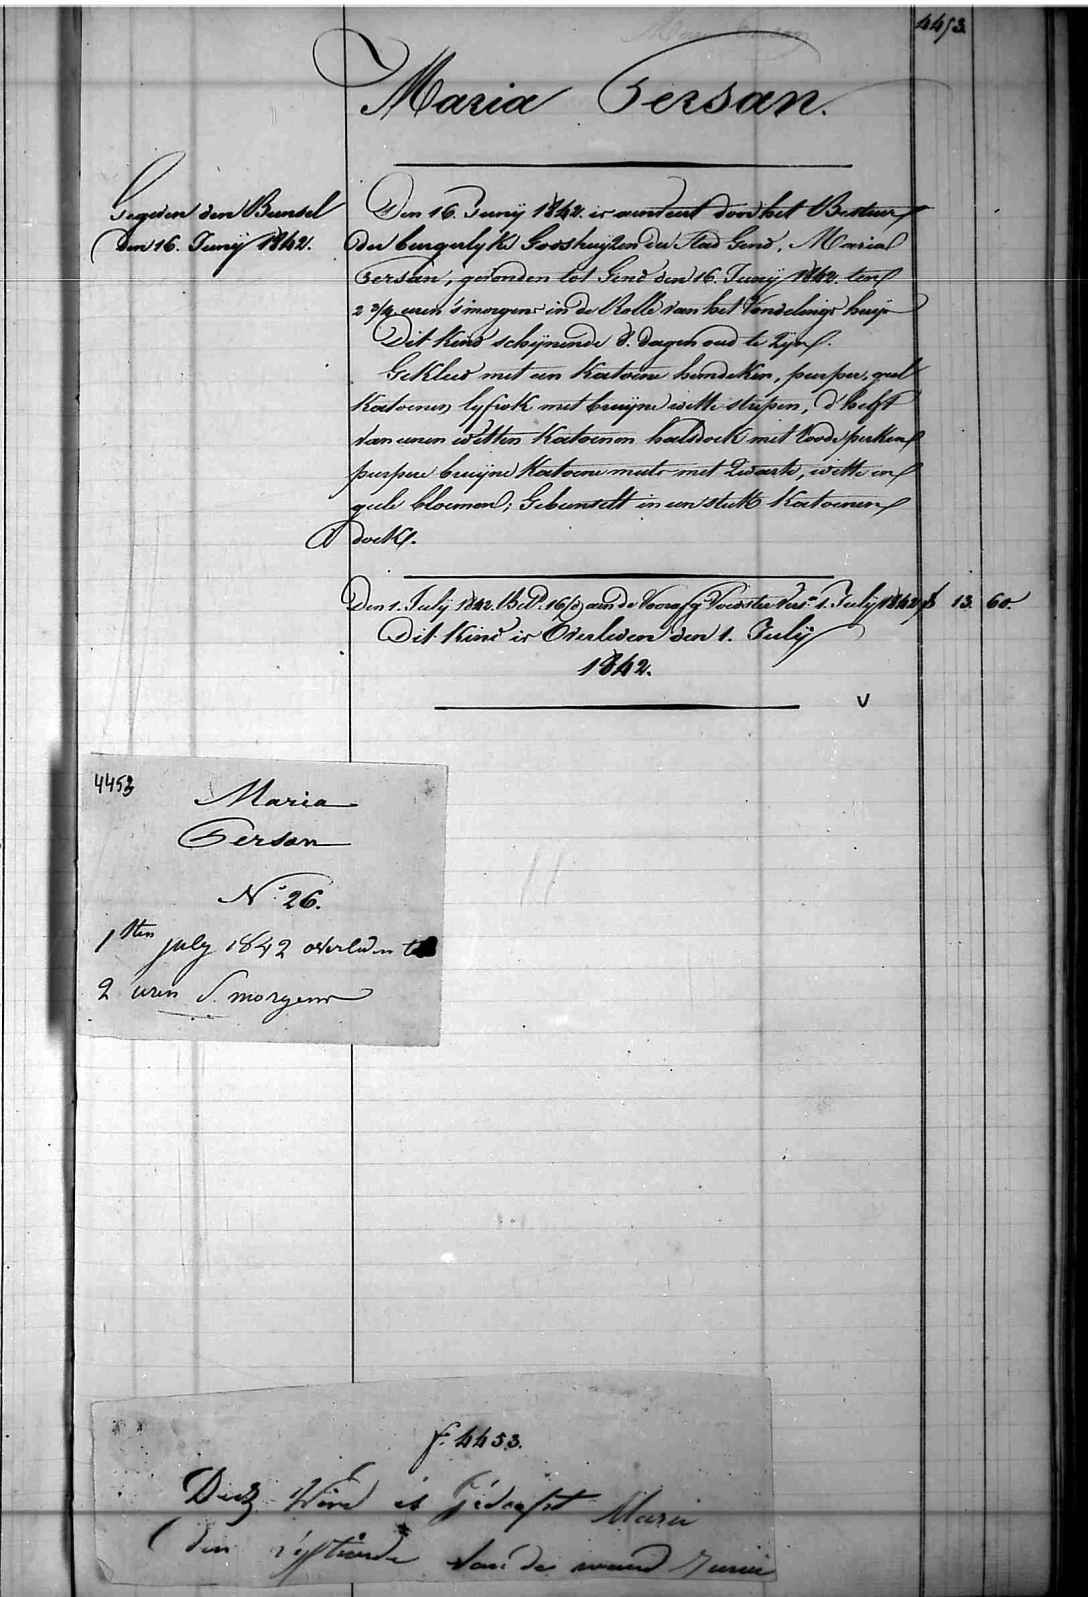 4453
Maria Gersan.
Gegeven den Bunsel
den 16. Junÿ 1842.
Den 16. Junÿ 1842. is aenveert door het Bestuer
der burgerlyke Godshuyzen der Stad Gend, Maria
Gersan, gevonden tot Gend den 16. Junÿ 1842. ten
2 3/4 uren 's morgens in de Rolle van het Vondelings huys
Dit kind schynende 8. dagen oud te zyn.
Gekleed met een katoene hemdeken, purper, geel
katoenen lyfrok met bruyne witte strepen, d'helft
van eenen witten katoenen halsdoek met roode perken
purpere bruyne katoene muts met zwarte, witte en
geele bloemen; Gebunselt in een stuk katoenen
doek.
Den 1. July 1842. Bet. 16/ aen de Voedster 1. July 1842 f 13. 60.
Dit kind is Overleden den 1. Julÿ
1842.
V
4453
Maria
Gersan
N. 26.
1sten july 1842 overleden te
2 uren S. morgens
f. 4453.
kind is Gedoopt Maria
den van de maend Junii